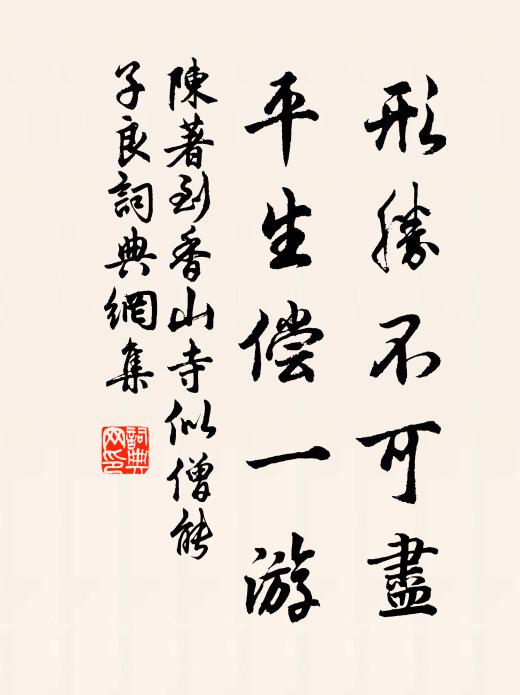 形勝不可盡
平生偿一游
陳著到香山寺似僧能
子良詞典網集
詞典
网印